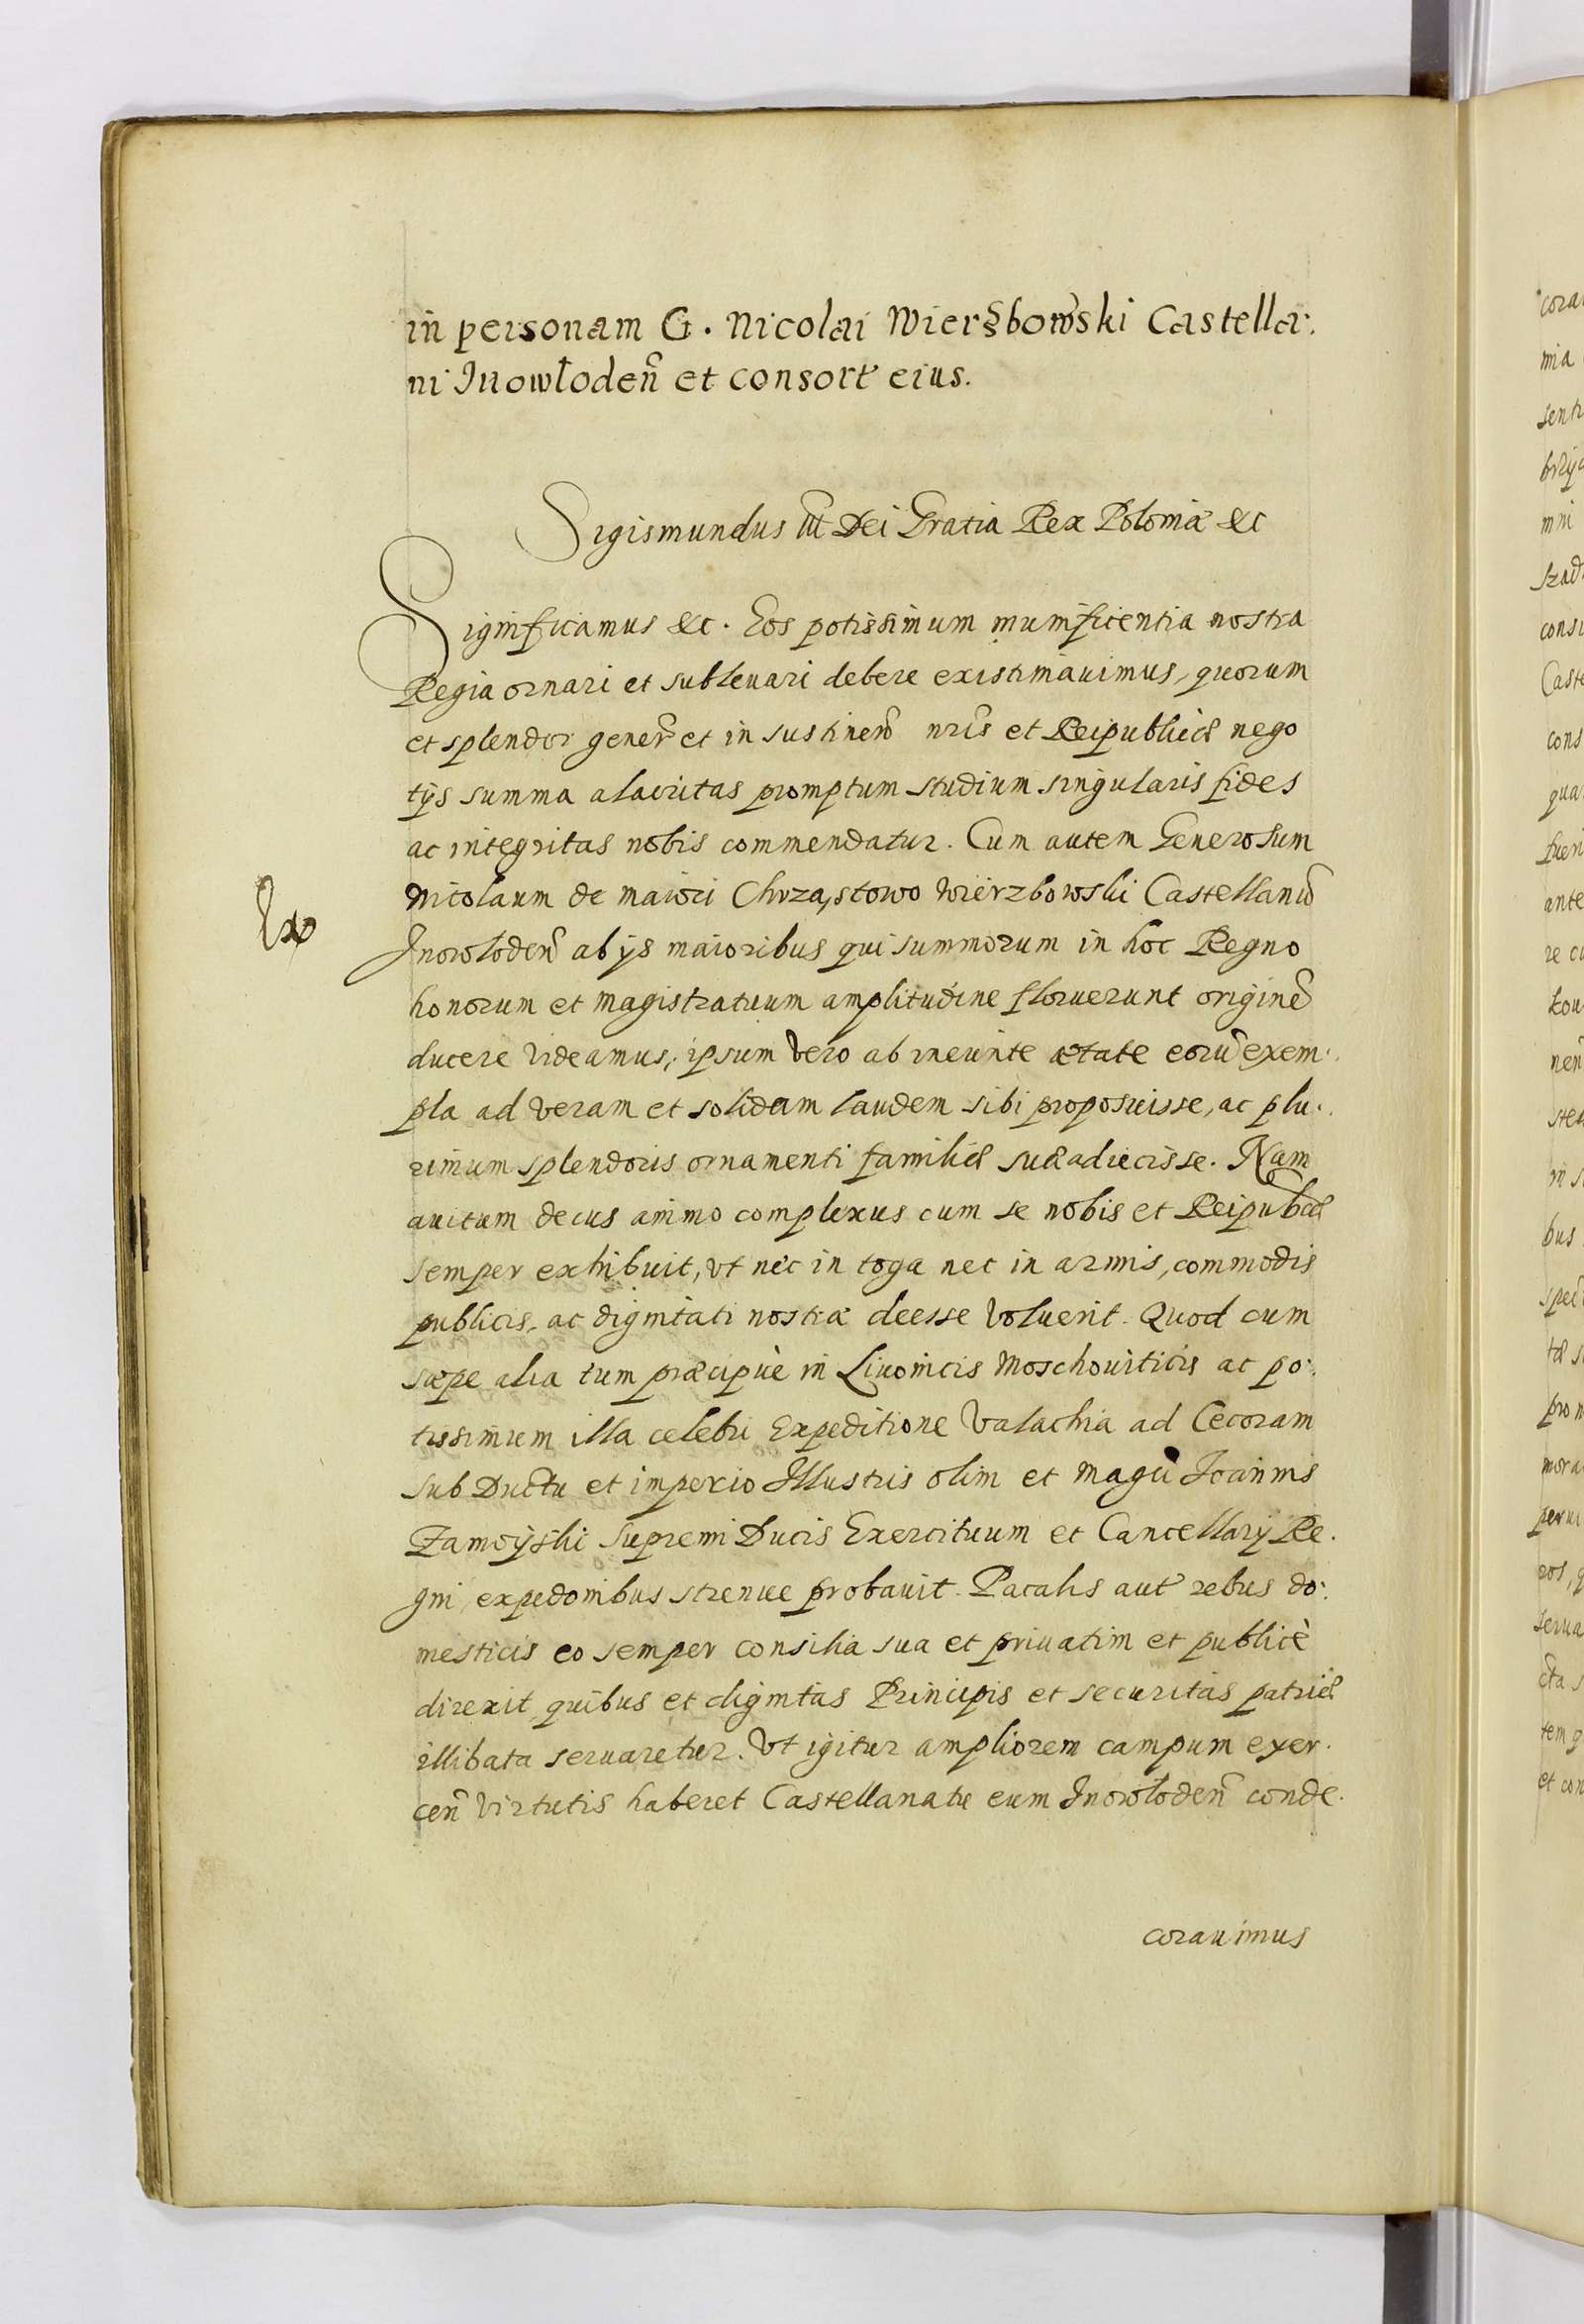 in personam G. Nicolai Wierzbowski Castella:
ni Inowłodeñ et consort eius.
Sigismundus IIIᵗ Dei Gratia Rex Poloniæ &c
Significamus &c. Eos potissimum munificentia nostra
Regia ornari et subleuari debere existimauimus, quorum
et splendor gener̃ et in sustineñ nr̃is et Reipublicæ nego
tijs summa alacritas promptum studium singularis fides
ac integritas nobis commendatur. Cum autem Generosum
Nicolaum de maiori Chrząstowo Wierzbowski Castellanũ
Inowlodeñ ab ijs maioribus qui summorum in hoc Regno
honorum et magistratuum amplitudine floruerunt originẽ
ducere videamus, ipsum vero ab ineunte ætate eorũ exem:
pla ad veram et solidam laudem sibi proposuisse, ac plu:
rimum splendoris ornamenti familiæ suæ adiecisse. Nam
auitum decus animo complexus eum se nobis et Reipub͂cæ
semper exhibuit, vt nec in toga nec in armis, commodis
publicis, ac dignitati nostræ deesse voluerit. Quod cum
sæpe alia tum præcipuè in Liuonicis Moschouiticis ac po:
tissimum illa celebri Expeditione Valachia ad Cecoram
sub Ductu et imperio Illustris olim et Magci Ioannis
Zamoÿski Supremi Ducis Exercituum et Cancellarij Re:
gni, expedonibus strenue probauit. Pacatis aut̃ rebus do:
mesticis eo semper consilia sua et priuatim et publicè
direxit, quibus et dignitas Principis et securitas patriæ
illibata seruaretur. Vt igitur ampliorem campum exer:
ceñ virtutis haberet Castellanatu eum Inowlodeñ conde:
corauimus